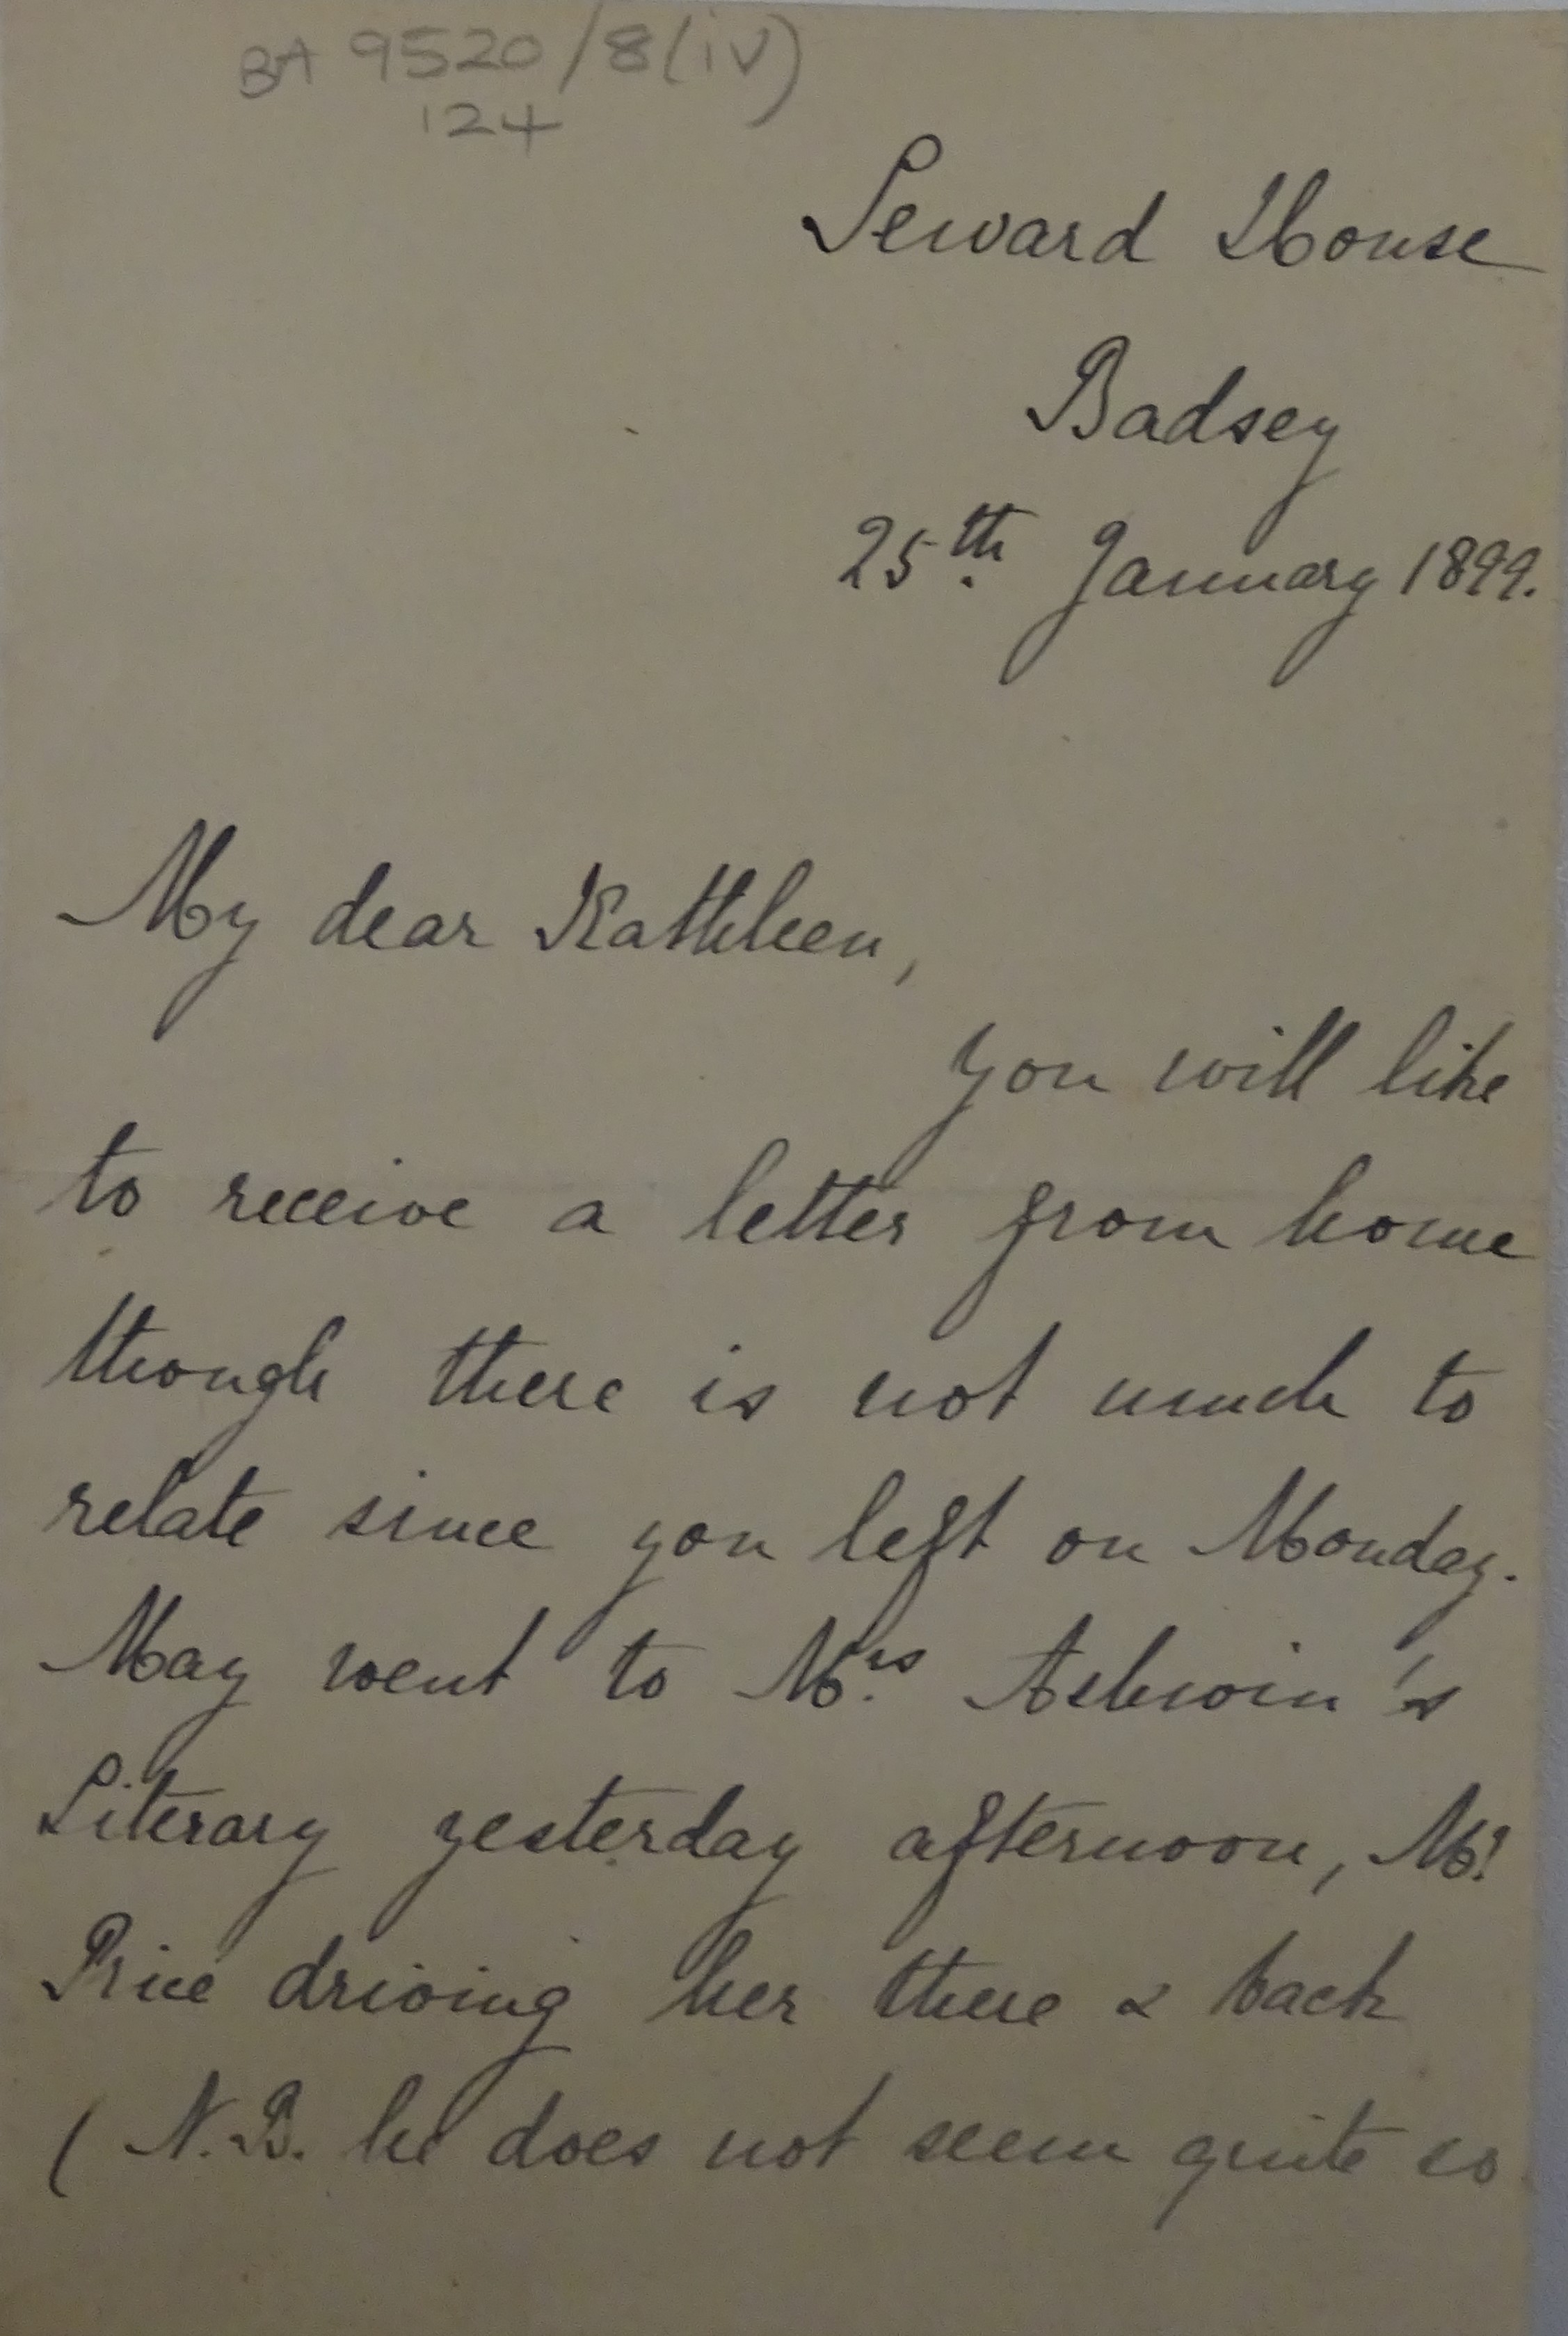 BA 9520/8(iv)
124
Seward House
Badsey
25th. January 1899.
My dear Kathleen,
you will like
to receive a letter from home
though there is not much to
relate since you left on Monday.
May went to Mrs. Ashwin's
Literary yesterday afternoon, Mr.
Price driving her there & back
(N.B. he does not seem quite so